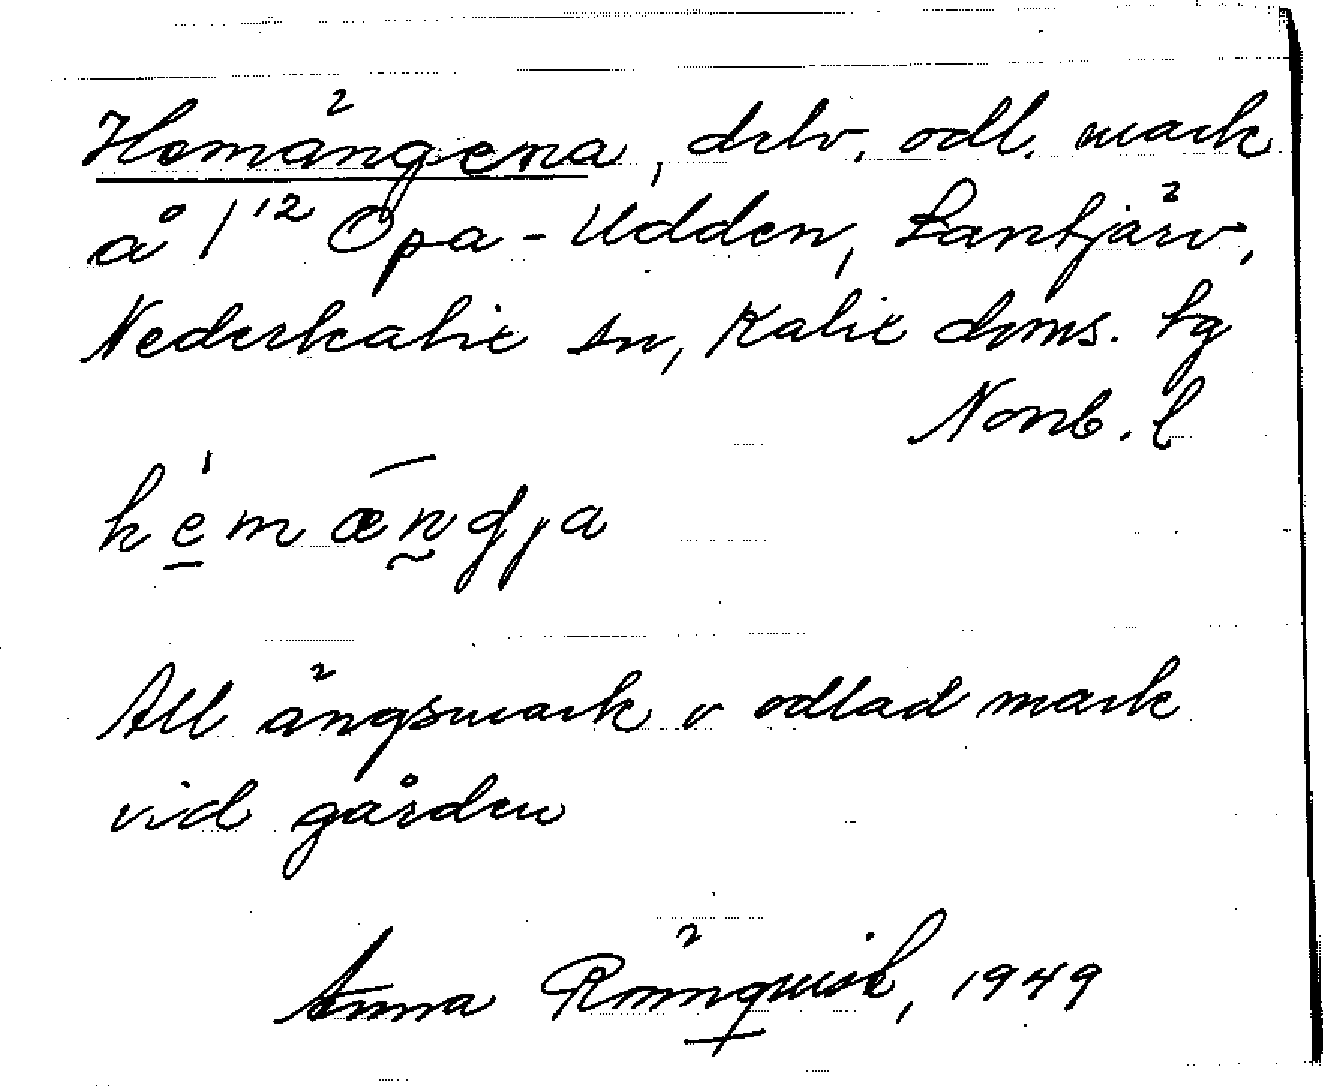 Hemängena, delv. odl. mark
å 1¹² Opa-Udden, Säntjärv,
Nederkalix sn, Kalix doms. tg
Norrb. l
hemæŋdja
All ängsmark o odlad mark
vid gården
Anna Rönnquist, 1949